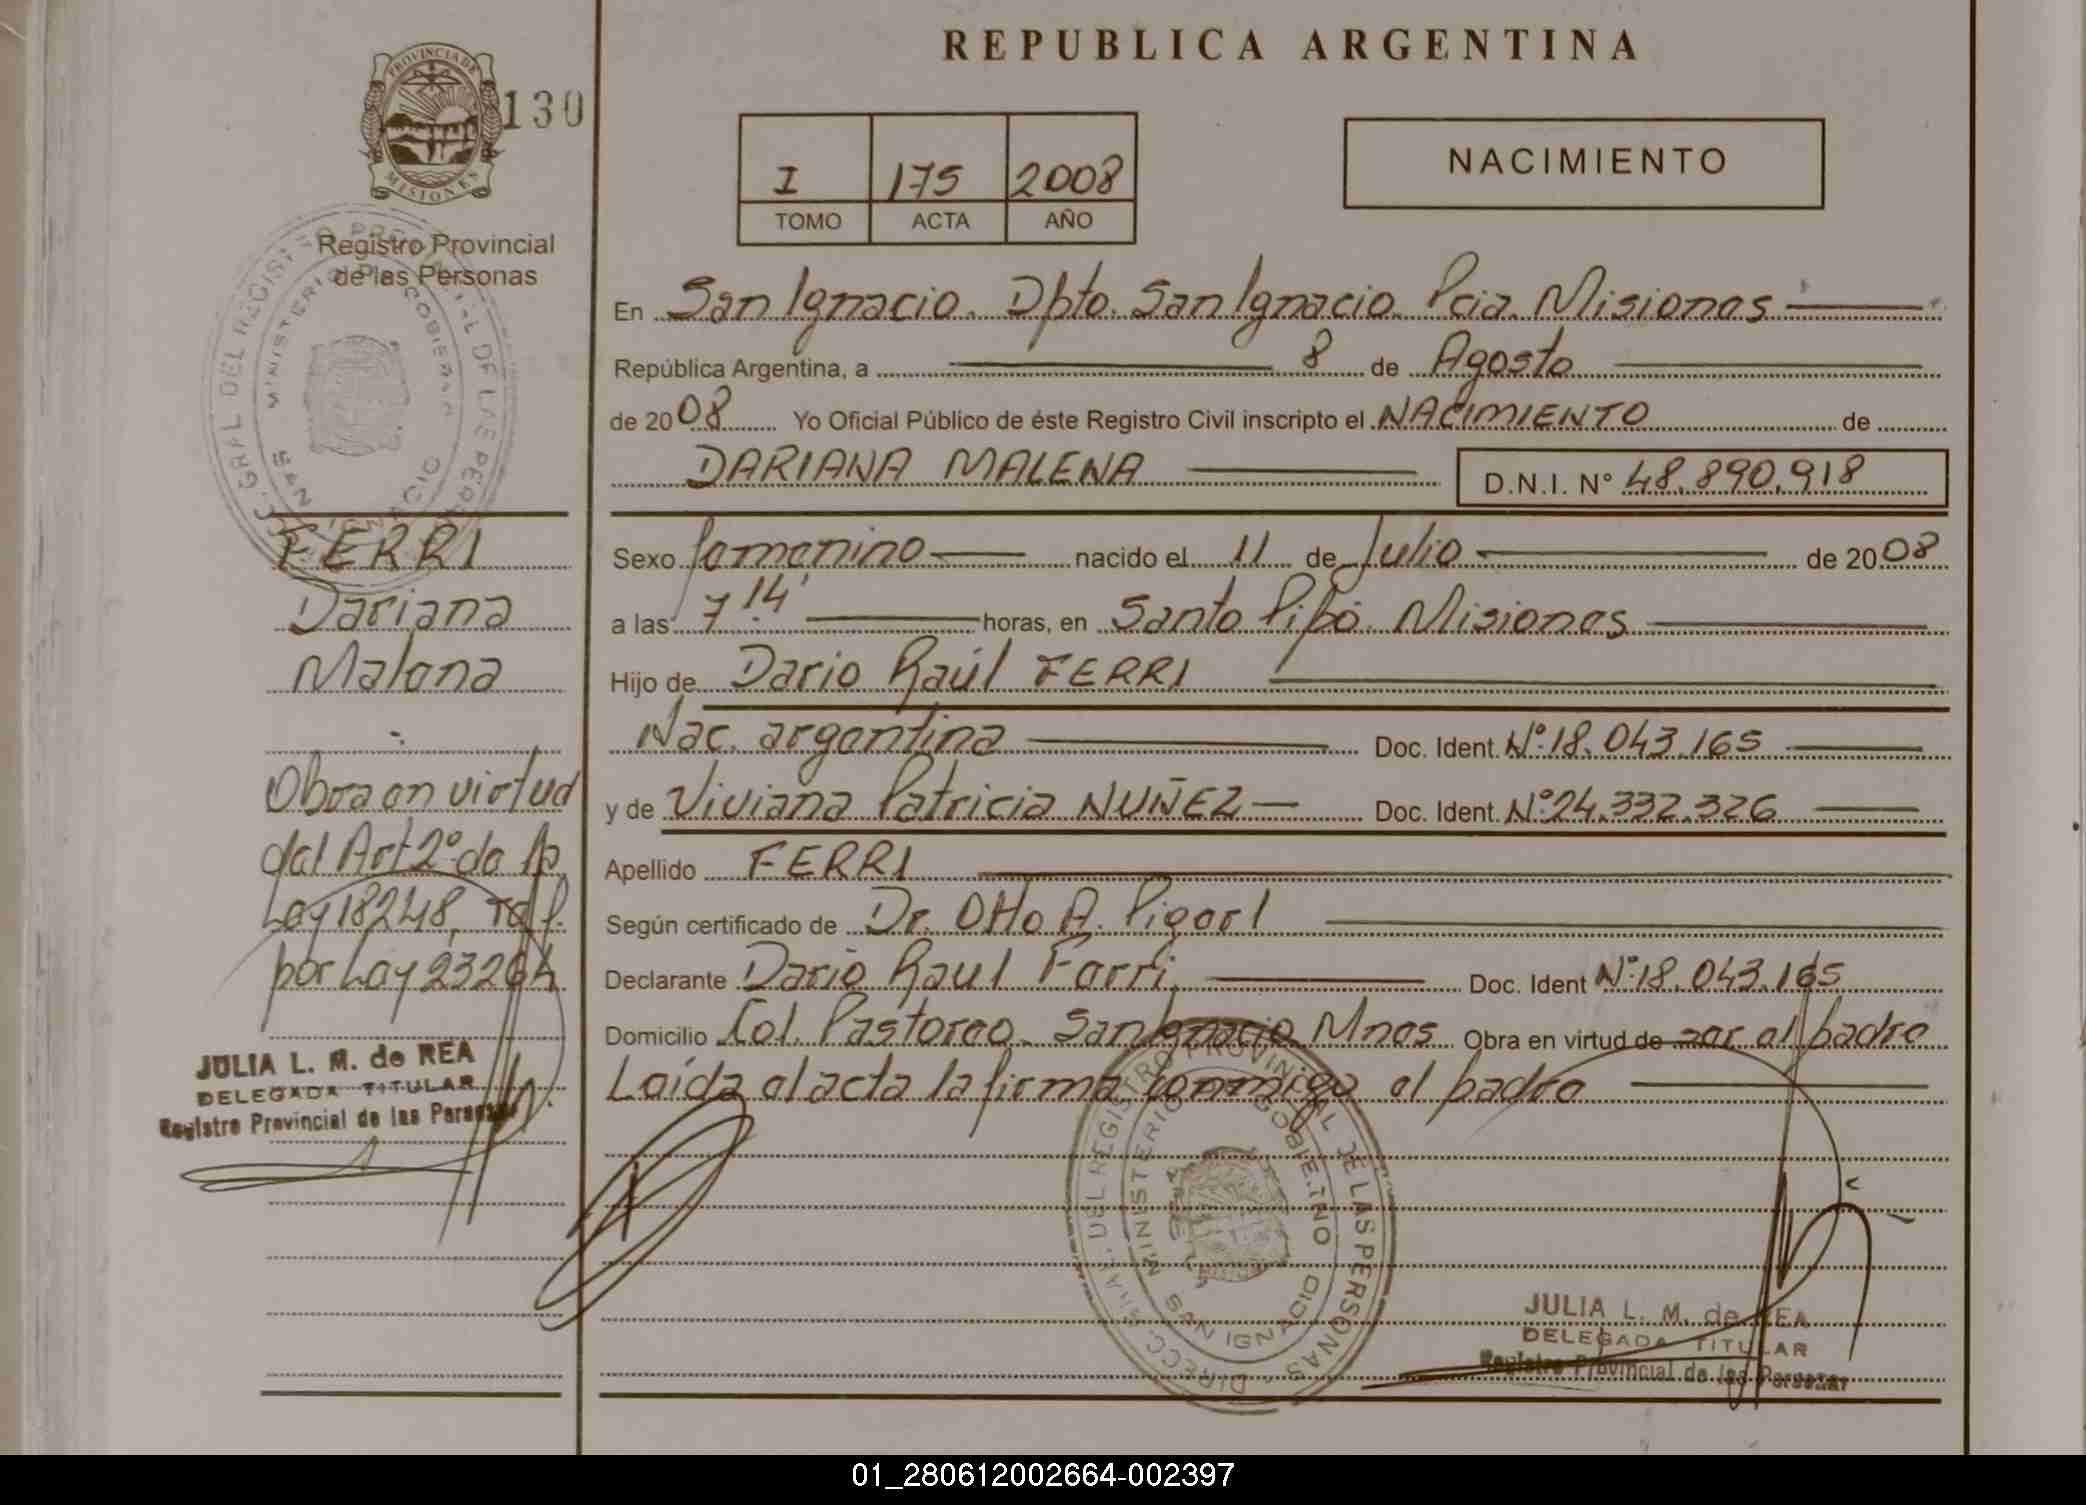 REPUBLICA ARGENTINA
PROVINCIA DE
MISIONES
130
I 175 2008
TOMO ACTA AÑO
NACIMIENTO
Registro Provincial
de las Personas
En San Ignacio. Dpto. San Ignacio. Pcia. Misiones
República Argentina, a 8 de Agosto
de 2008 Yo Oficial Público de éste Registro Civil inscripto el NACIMIENTO de
DARIANA MALENA D.N.I. N° 48.890.918
Sexo femenino nacido el 11 de Julio de 2008
a las 7.14' horas, en Santo Pipó. Misiones
Hijo de Dario Raúl FERRI
Nac. argentina Doc. Ident. Nº:18.043.165
y de Viviana Patricia NUÑEZ Doc. Ident. Nº:24.332.326
Apellido FERRI
Según certificado de Dr. Otto A. Pigerl
Declarante Dario Raul Ferri Doc. Ident Nº:18.043.165
Domicilio Col. Pastoreo. San Ignacio Mnes Obra en virtud de ser el padre
Leída el acta la firma conmigo el padre
FERRI
Dariana
Malena
Obra en virtud
del Art 2º de la
Ley 18248, ref.
por Ley 23264
JULIA L. M. de REA
DELEGADA TITULAR
Registro Provincial de las Personas
DIRECC. GRAL. DEL REGISTRO PROVINCIAL DE LAS PERSONAS
MINISTERIO DE GOBIERNO
SAN IGNACIO
JULIA L. M. de REA
DELEGADA TITULAR
Registro Provincial de las Personas
01_280612002664-002397